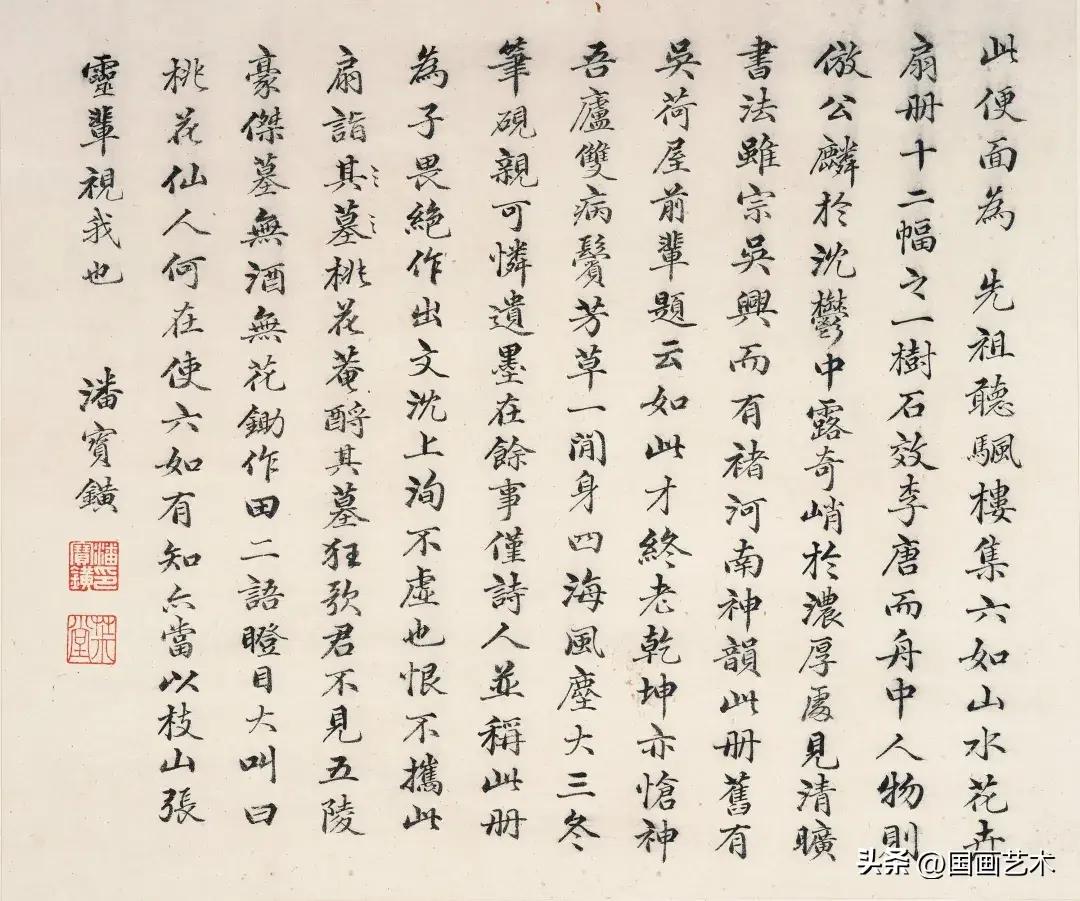 此便面為 先祖聽颿樓集六如山水花卉
扇册十二幅之一樹石效李唐而舟中人物則
倣公麟於沈鬱中露奇峭於濃厚處見清曠
書法雖宗吳興而有褚河南神韻此册舊有
吳荷屋前輩題云如此才終老乾坤亦愴神
吾廬雙病鬢芳草一閒身四海風塵大三冬
筆硯親可憐遺墨在餘事僅詩人並稱此册
為子畏絕作出文沈上洵不虛也恨不攜此
扇詣其墓桃花菴酹其墓狂歌君不見五陵
豪傑墓無酒無花鋤作田二語瞪目大叫曰
桃花仙人何在使六如有知亦當以枝山張
靈輩視我也 潘寶鐄
潘寶鐄印
头条 @国画艺术